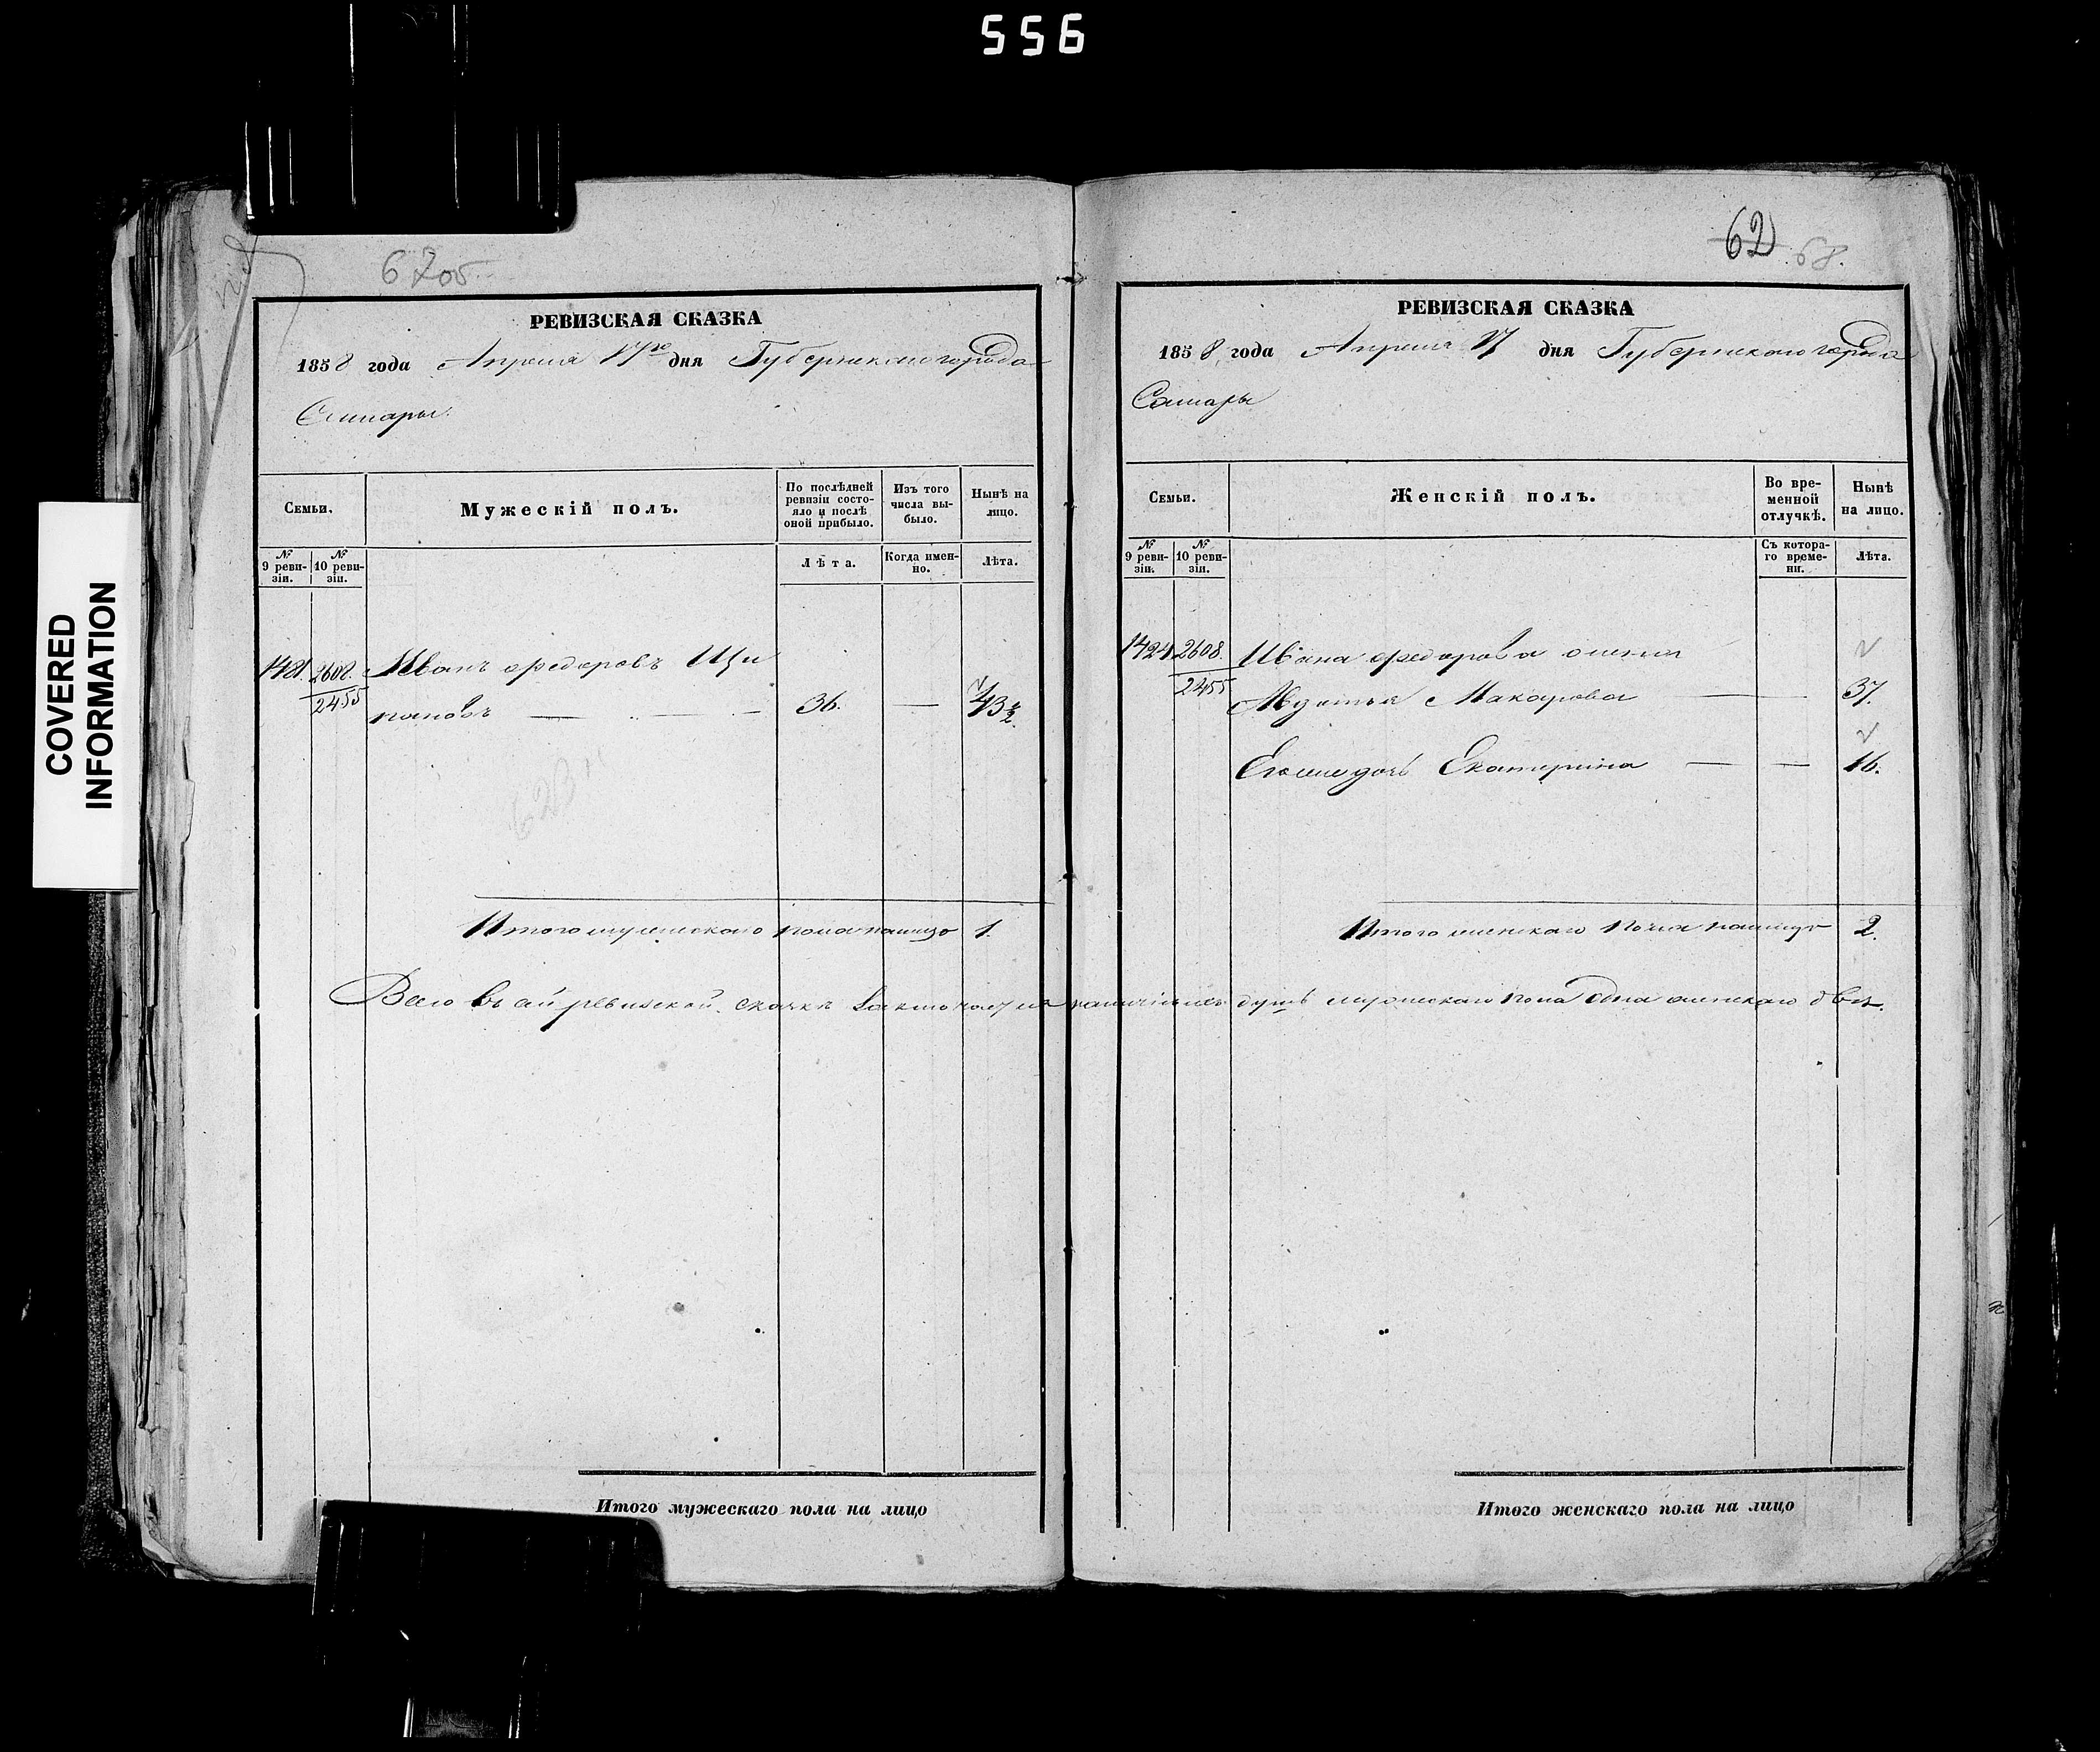 556
COVERED
INFORMATION
6705
РЕВИЗСКАЯ СКАЗКА
1858 года Апреля 17го дня Губернского города
Самары.
Семьи.
Мужескій полъ.
По послѣдней ревизіи состояло и послѣ оной прибыло.
Изъ того числа выбыло.
Нынѣ на лицо.
№ 9 ревизіи.
№ 10 ревизіи.
Лѣта.
Когда именно.
Лѣта.
1421. 2608. Иванъ Федоровъ Щи
2455 пановъ — — — 36. — 43½.
Итого мужескаго пола налицо 1.
Итого мужескаго пола на лицо
62 68.
РЕВИЗСКАЯ СКАЗКА
1858 года Апреля 17 дня Губернского города
Самары
Семьи.
Женскій полъ.
Во временной отлучкѣ.
Нынѣ на лицо.
№ 9 ревизіи.
№ 10 ревизіи.
Съ котораго времени.
Лѣта.
1421 2608. Ивана Федорова жена
2455 Авдотья Макарова — — 37.
Его дочь Екатерина — — 16.
Итого женскаго пола налицо 2.
Всего въ ревизской сказке наличныхъ душъ мужескаго пола одна женскаго две.
Итого женскаго пола на лицо